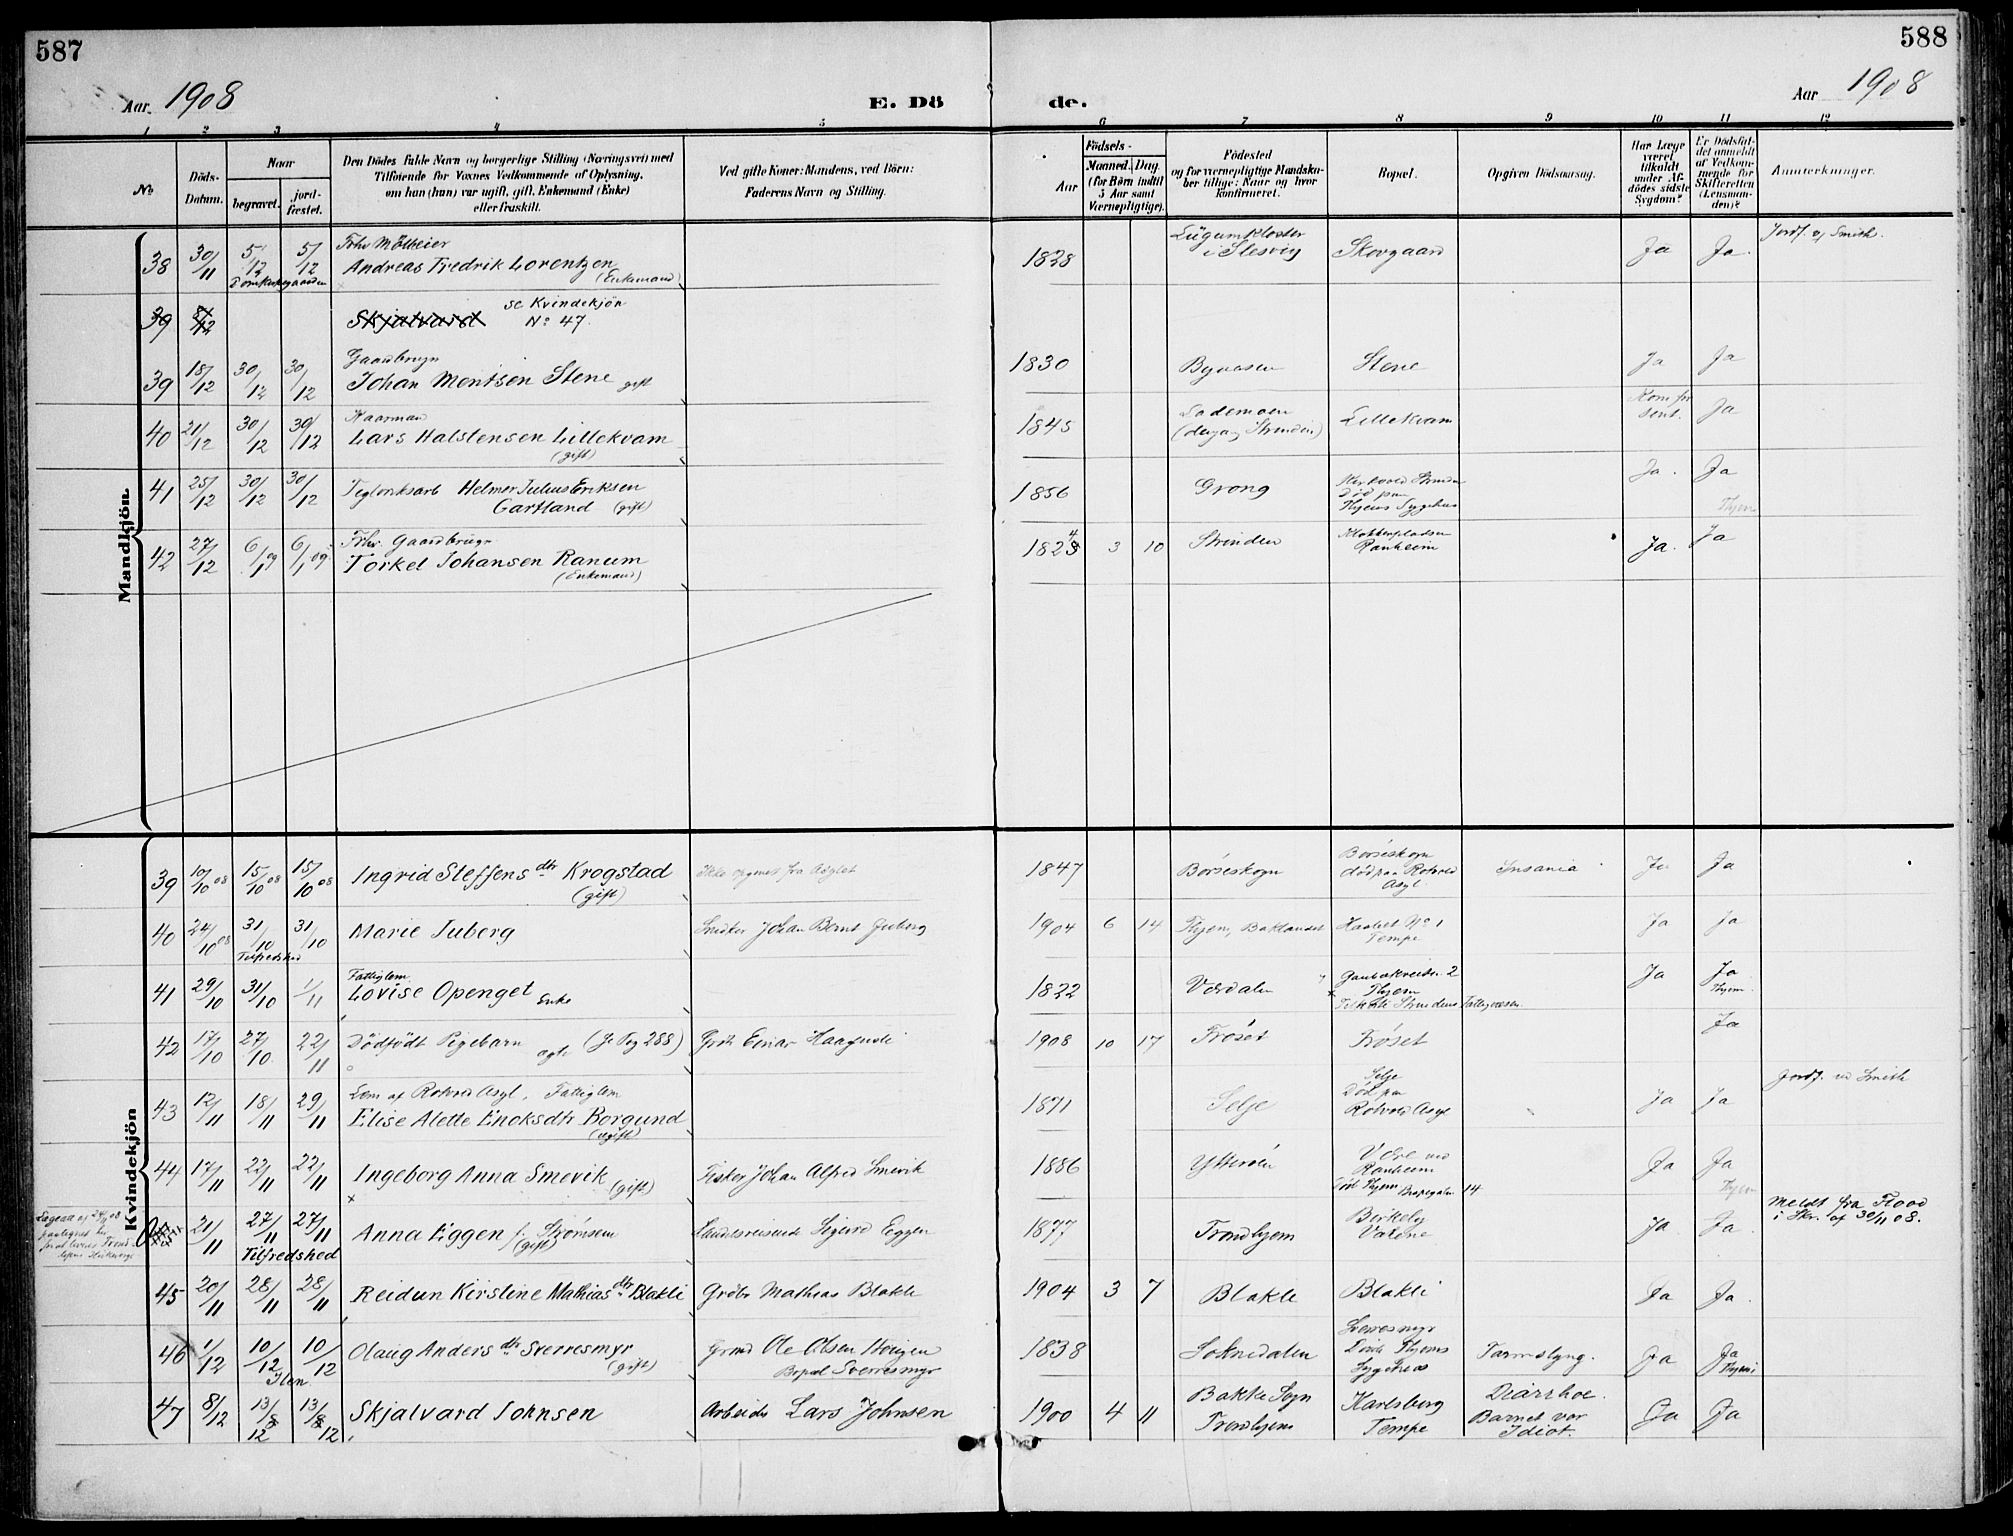 587
588
Aar 1908
E. Dö
de.
Aar 1908
1 2 3 4 5 6 7 8 9 10 11 12
No
Döds-
Datum.
Naar
begravet.
jord-
fæstet.
Den Dödes fulde Navn og borgerlige Stilling (Næringsvei) med
Tilføiende for Voxnes Vedkommende af Oplysning,
om han (hun) var ugift, gift, Enkemand (Enke)
eller fraskilt.
Ved gifte Koner: Mandens, ved Börn:
Faderens Navn og Stilling.
Födsels-
Aar
Maaned. Dag.
(for Börn indtil
5 Aar samt
Værnepligtige).
Födested
og for værnepligtige Mandska-
ber tillige: Naar og hvor
konfirmeret.
Bopæl.
Opgiven Dödsaarsag.
Har Læge
været
tilkaldt
under Af-
dödes sidste
Sygdom?
Er Dödsfal-
det anmeldt
af Vedkom-
mende for
Skifteretten
(Lensman-
den)?
Anmerkninger.
Mandkjön.
38 30/11 5/12 5/12 Domkirkegaarden Fhv Mölleier
Andreas Fredrik Lorentzen (Enkemand) 1828 Lügumkloster
i Slesvig Skovgaard Ja Ja. Jordf. v/ Smith.
39 8/12 Skjalvard se Kvindekjön
No 47.
39 18/12 30/12 30/12 Gaardbrugr
Johan Mentsen Stene gift 1830 Byneset Stene Ja Ja
40 21/12 30/12 30/12 Kaarmand
Lars Halstensen Lillekvam (gift) 1845 Lademoen
Strinden) Lillekvam Kom for
sent. Ja
41 25/12 30/12 30/12 Teglverksarb Helmer Julius Eriksen
Gartland (gift) 1856 Grong Strinden
Död paa
Thjems Sygehus Ja. Ja
Thjem
42 27/12 6/1 09 6/1 09 Fhv. Gaardbruger
Torkel Johansen Ranum
(Enkemand) 1823 4 3 10 Strinden Klokkerpladsen
Ranheim Ja. Ja
Kvindekjön
39 10/10 08 15/10 08 15/10 08 Ingrid Steffensdtr Krogstad
(gift) Ikke opgivet fra Asylet 1847 Börseskogn Börseskogn
död paa Rotvold
Asyl Insania Ja Ja
40 24/10 08 31/10 31/10 Tilfredshed Marie Juberg Snedker Johan Bernt Juberg 1904 6 14 Thjem, Baklandet Haabet No 1
Tempe Ja Ja
41 29/10 31/10 1/11 Fattiglem
Lovise Openget Enke 1822 Værdalen 2
Thjem
Fattigvæsen. Ja Ja
Thjem
42 17/10 27/10. 22/11 Dödfödt Pigebarn ægte (Je Pag 288) Grdr. Einar 1908 10 17 Fröset Fröset Ja
43 12/11 18/11 29/11 Lem af Rotvold Asyl, Fattiglem
Elise Alette Enoksdtr Borgund
(ugift) 1871 Selje Selje
Död paa
Rotvold Asyl Ja Ja Jordf. v/ Smith
44 17/11 22/11 22/11 Ingeborg Anna Smevik (gift) Fisker Johan Alfred Smevik 1886 Ytteröen Være ved
Ranheim
död Thjem 14 Ja Ja
Thjem
21/11 27/11 27/11 Tilfredshed Anna Eggen f. Strömsem
(gift) Landsreisende Sigurd Eggen 1877 Trondhjem Birkely
Ja. Ja. Meldt fra Flood
i Skr. af 30/11 08.
45 20/11 28/11 28/11 Reidun Kirstine Mathiasdtr Blakli Grdbr Mathias Blakli 1904 3 7 Blakli Blakli Ja Ja.
46 1/12 10/12 10/12 Ilen Olaug Andersdtr Sverresmyr
(gift) Grmd Ole Olsen
Bopæl Sverresmyr 1838 Soknedalen Sverresmyr
Döde Thjems
Sygehus Tarmslyng. Ja Ja
Thjem
47 8/12 13/12 13/12 Skjalvard Johnsen Arbeider Lars Johnsen 1900 4 11 Bakke Sogn
Trondhjem Karlsberg
Tempe Diarrhoe.
Barnet var
Idiot. Ja Ja